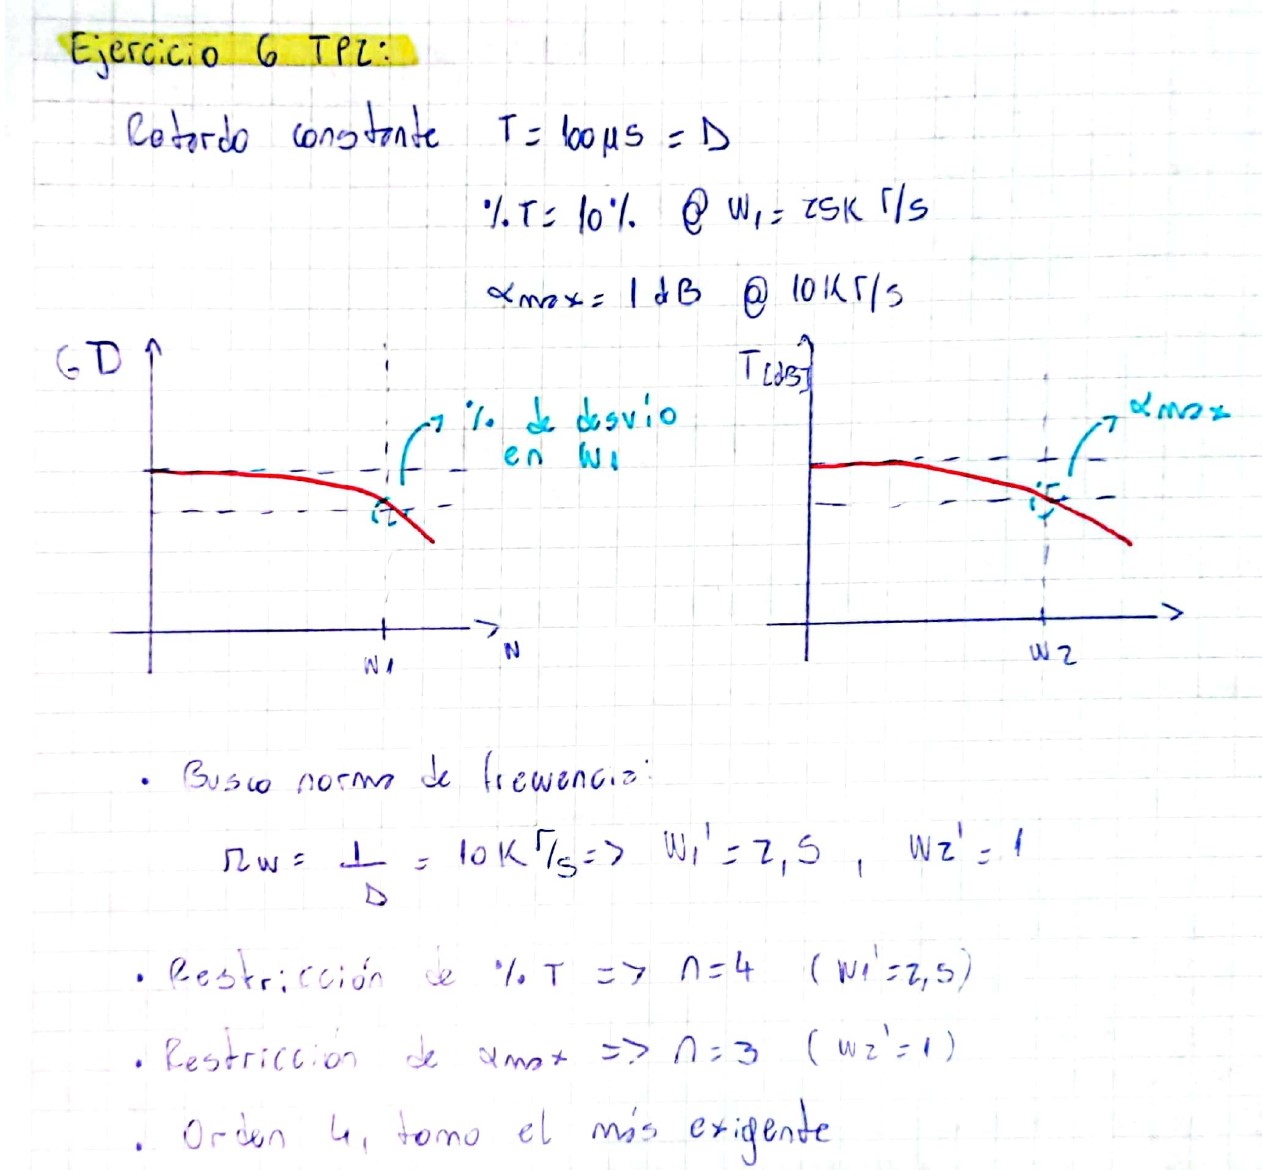 Ejercicio 6 TP2:
Retardo constante T = 100 μs = D
% T = 10 % @ W1 = 25K r/s
αmax = 1 dB @ 10K r/s
GD
% de desvio
en W1
W1
W
T[dB]
αmax
W2
• Busco norma de frecuencia:
Ωw = 1/D = 10K r/s => W1' = 2,5 , W2' = 1
• Restricción de % T => n=4 (W1'=2,5)
• Restricción de αmax => n=3 (W2'=1)
• Orden 4, tomo el más exigente